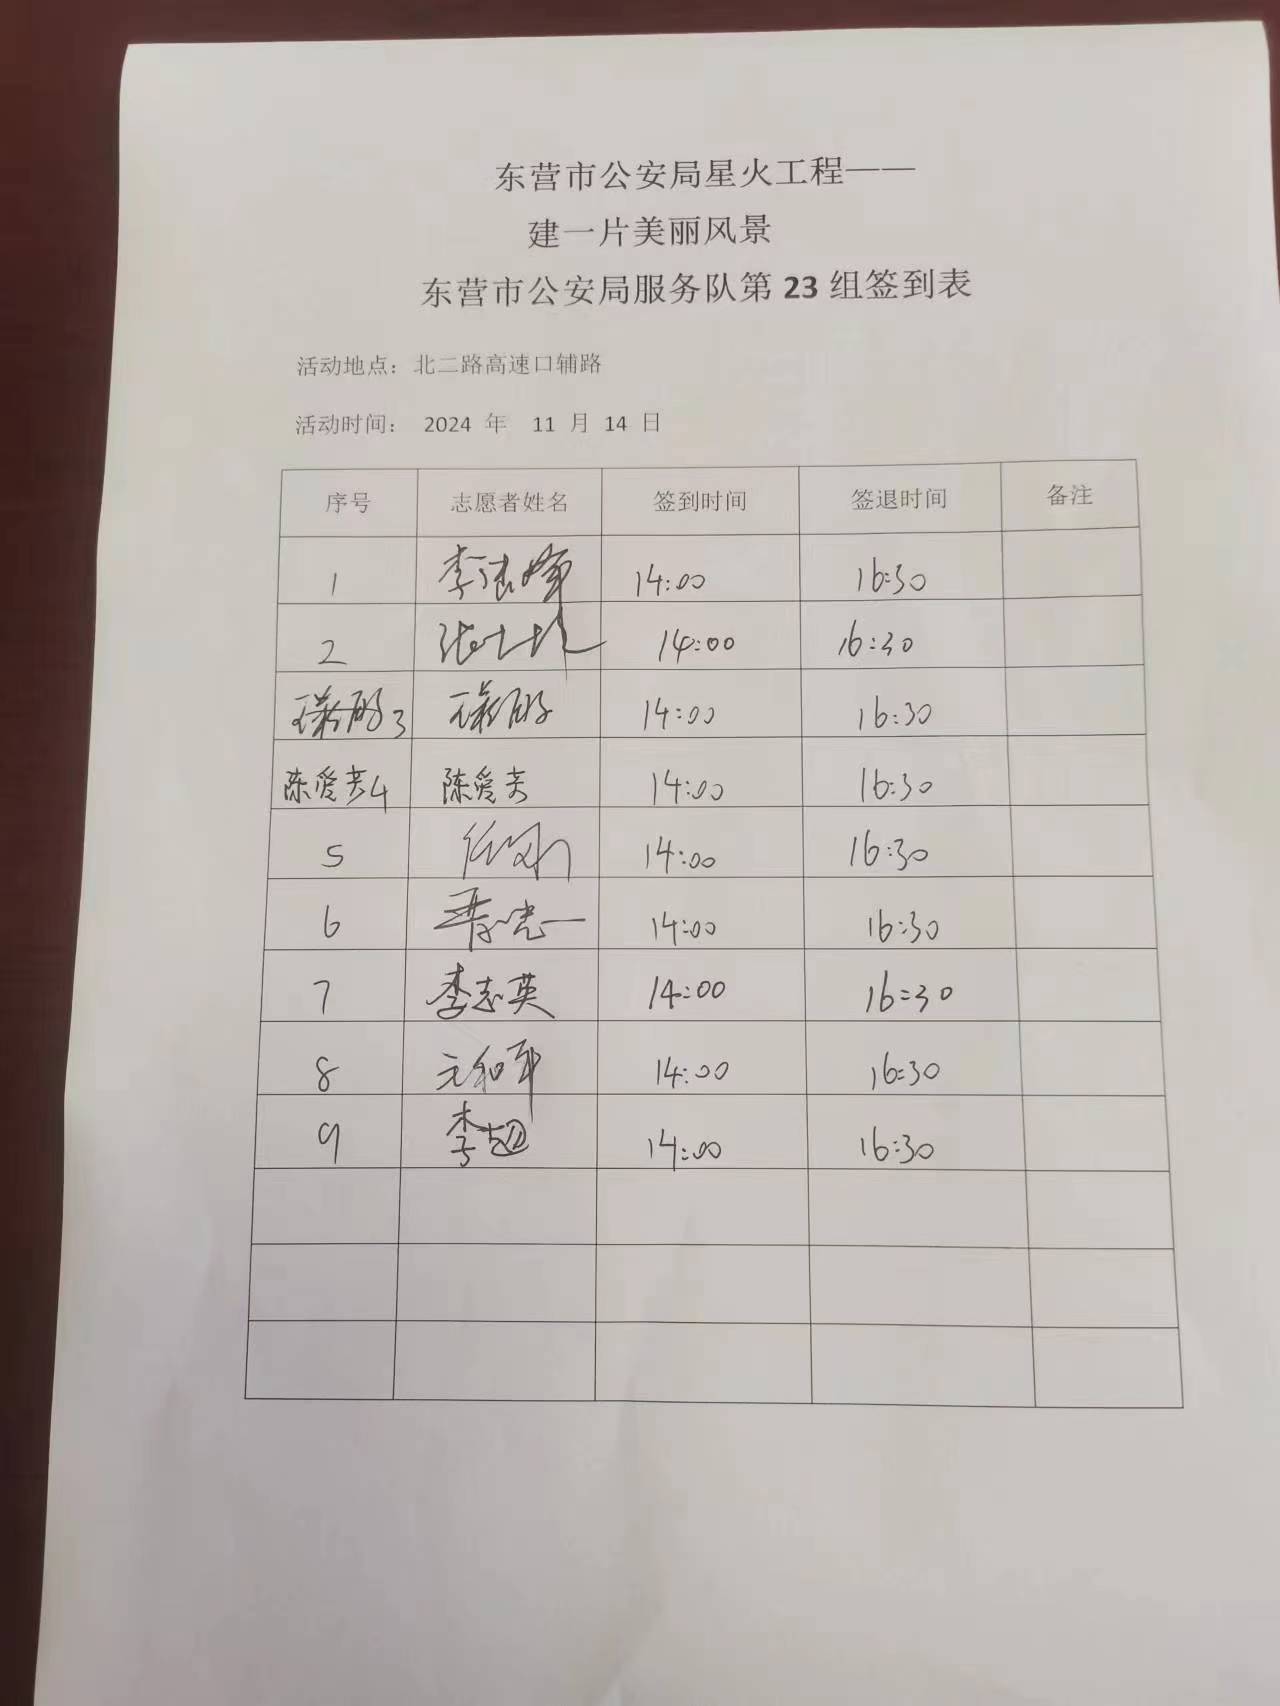 东营市公安局星火工程——
建一片美丽风景
东营市公安局服务队第 23 组签到表
活动地点：北二路高速口辅路
活动时间： 2024 年 11 月 14 日
序号 志愿者姓名 签到时间 签退时间 备注
1 14:00 16:30
2 14:00 16:30
3 14:00 16:30
陈爱芳4 陈爱芳 14:00 16:30
5 14:00 16:30
6 14:00 16:30
7 李志英 14:00 16:30
8 元和军 14:00 16:30
9 李超 14:00 16:30